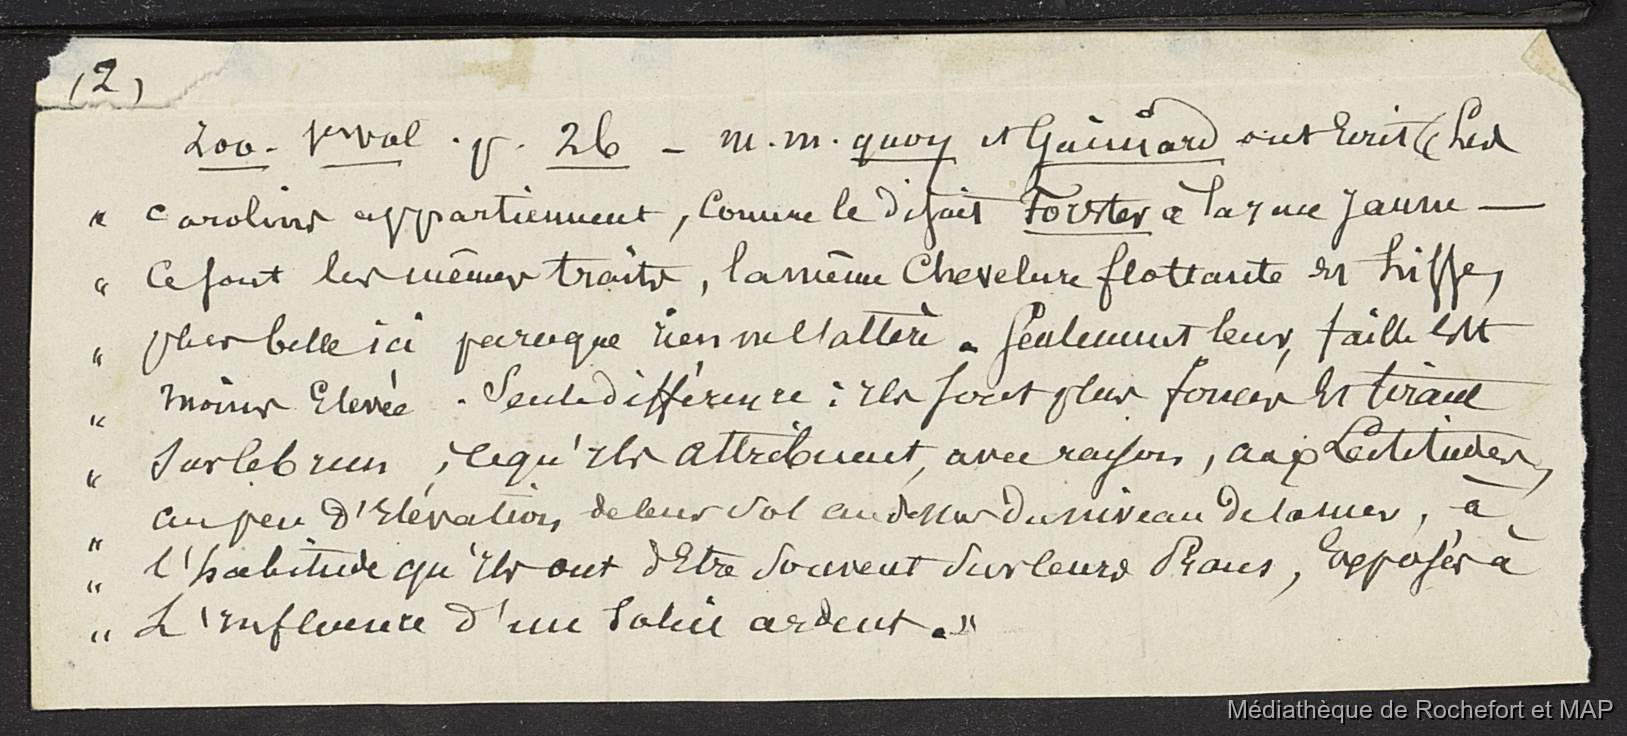 (2)
Zoo. 1er vol. p. 26 - m. m. quoy et Gaimard ont Ecrit (( Les
" carolins appartiennent, comme le disait Forster à la race jaune —
" Ce sont les mêmes traits, la même Chevelure flottante et lisse,
" plus belle ici parceque rien ne l'altère. Seulement leur taille est
" moins Elevée. Seule différence : ils sont plus foncés Et tirant
" sur le brun, ce qu'ils attribuent, avec raison, aux Latitudes,
" au peu d'Elévation de leur sol au dessus du niveau de la mer, à
" l'habitude qu'ils ont d'Etre souvent sur leurs Praus, Exposés à
" L'influence d'un Soleil ardent. "
Médiathèque de Rochefort et MAP